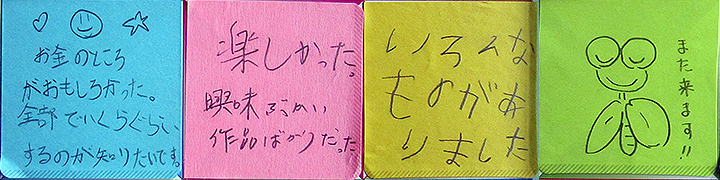 お金のところ
がおもしろかった。
全部でいくらぐらい
するのが知りたいです。
楽しかった。
興味ぶかい
作品ばかりだった
いろんな
ものがあ
りました
また来ます!!